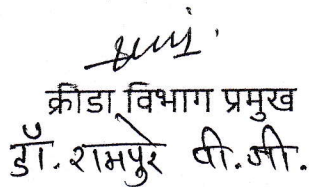 क्रीडा विभाग प्रमुख
डॉ. रामपुरे पी.जी.